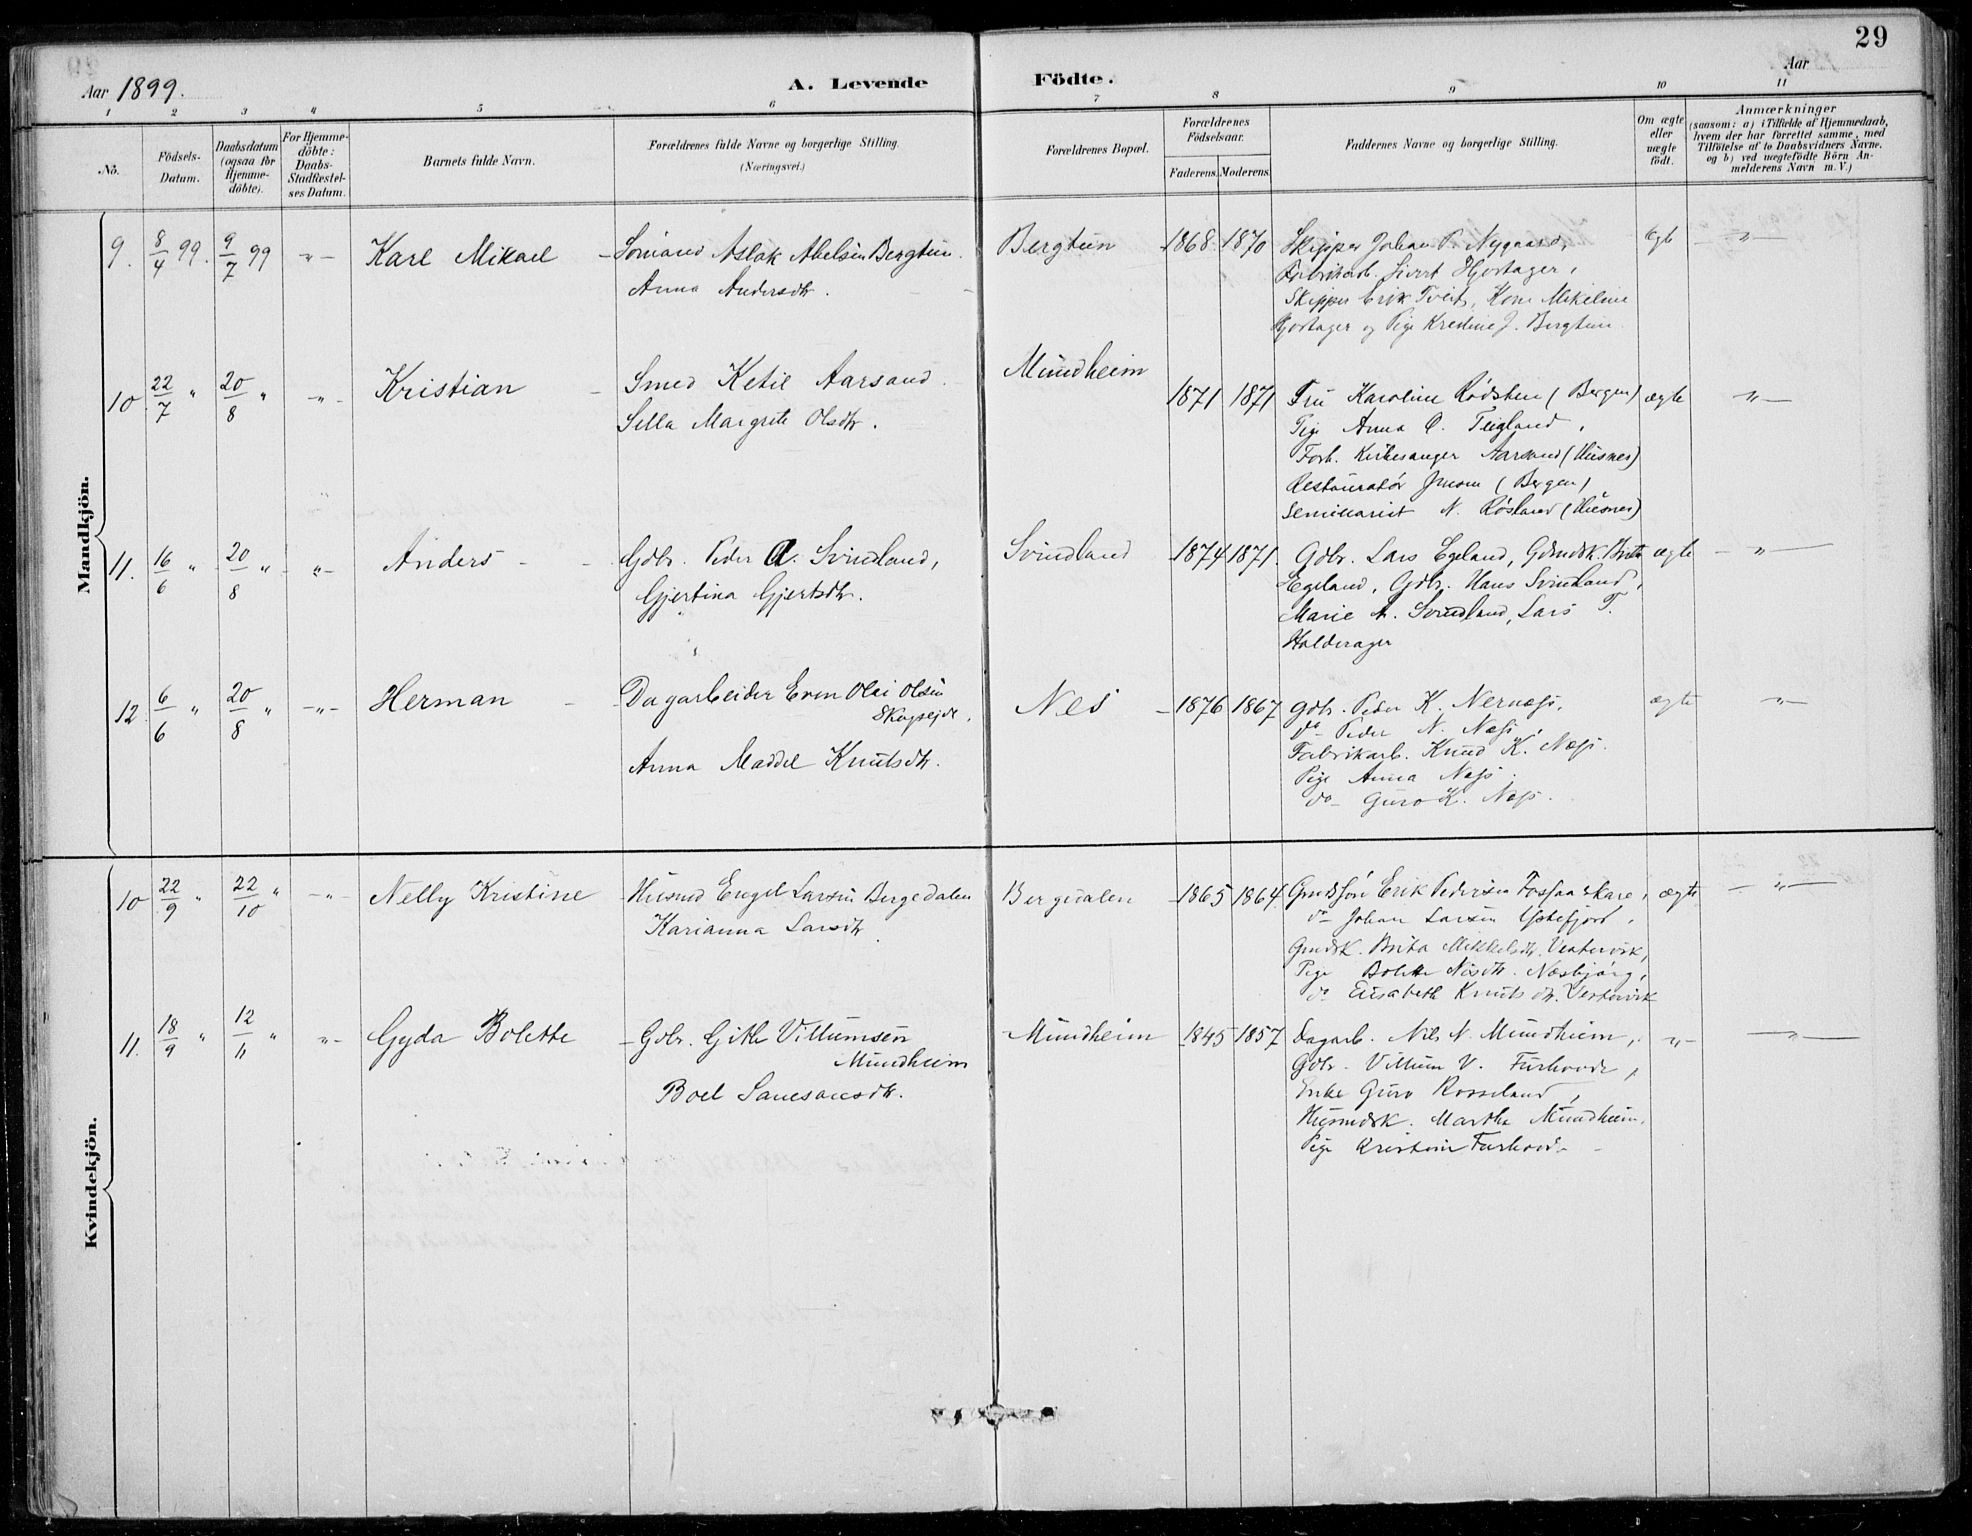 29
Aar 1899.
A. Levende Födte.
Aar
1 2 3 4 5 6 7 8 9 10 11
No.
Födsels-
Datum.
Daabsdatum
(ogsaa for
Hjemme-
döbte).
For Hjemme-
döbte:
Daabs-
Stadfæstel-
ses Datum.
Barnets fulde Navn.
Forældrenes fulde Navne og borgerlige Stilling.
(Næringsvei.)
Forældrenes Bopæl.
Forældrenes
Födselsaar.
Faderens. Moderens.
Faddernes Navne og borgerlige Stilling.
Om ægte
eller
uægte
födt.
Anmærkninger
(saasom: a) i Tilfælde af Hjemmedaab,
hvem der har forrettet samme, med
Tilföielse af to Daabsvidners Navne.
og b) ved uægtefödte Börn An-
melderens Navn m. V.)
Mandkjön.
9. 8/4 99. 9/7 99 -"- Karl Mikael
Sømand Aslak Abelsen Bergtun.
Anna Andersdtr.
Bergtun 1868. 1870
Skipper Johan P. Nygaard,
Fabrikarb. Sivert Hjortager,
Skipper Erik Tveit, Kone Mikeline
Hjortager og Pige Kristine J. Bergtun.
Ægte -"-
10 22/7 " 20/8 " -"- Kristian
Smed Ketil Aarsand.
Sella Margrete Olsdtr.
Mundheim 1871 1871
Fru Karoline Rødsten (Bergen)
Pige Anna O. Teigland,
Forh. Kirkesanger Aarsand (Husnes)
Restauratør Jensen (Bergen)
Seminarist N. Røsland (Husnes)
ægte -"-
11. 16/6 " 20/8 " -"- Anders
Gdbr. Peder A. Svindland,
Gjertina Gjertsdtr.
Svindland 1874 1871.
Gdbr. Lars Egeland, Gdmdsk. Brita
Egeland, Gdbr. Hans Svindland,
Marie A. Svindland, Lars T.
Halderager
ægte -"-
12. 6/6 " 20/8 " -"- Herman
Dagarbeider Even Olai Olsen
Skogseide,
Anna Maddel Knutsdtr.
Nes 1876 1867
Gdbr. Peder K. Nernæss,
do Peder N. Næss,
Fabrikarb. Knud K. Næss.
Pige Anna Næss.
do Guro K. Næss.
ægte -"-
Kvindekjön.
10 22/9 " 22/10 " -"- Nelly Kristine
Husmd Engel Larsen Bergedalen
Karianna Larsdtr.
Bergedalen 1865 1864.
Gmdssøn Erik Pedersen Fosfaaskare,
do Johan Larsen Ystefjord,
Gmdsk. Brita Mikkelsdtr. Vestervik,
Pige Bolette Nilsdtr. Næsbjørg,
do Elisabeth Knutsdtr. Vestervik
ægte -"-
11. 18/9 " 12/11 " "- Gyda Bolette
Gdbr. Gitle Villumsen
Mundheim
Boel Samsonsdtr.
Mundheim 1845 1857
Dagarb. Nils N. Mundheim,
Gdbr. Villum V. Furhovde,
Enke Guro Rosseland,
Husmdsk. Martha Mundheim.
Pige Kristine Furhovde
-"- -"-